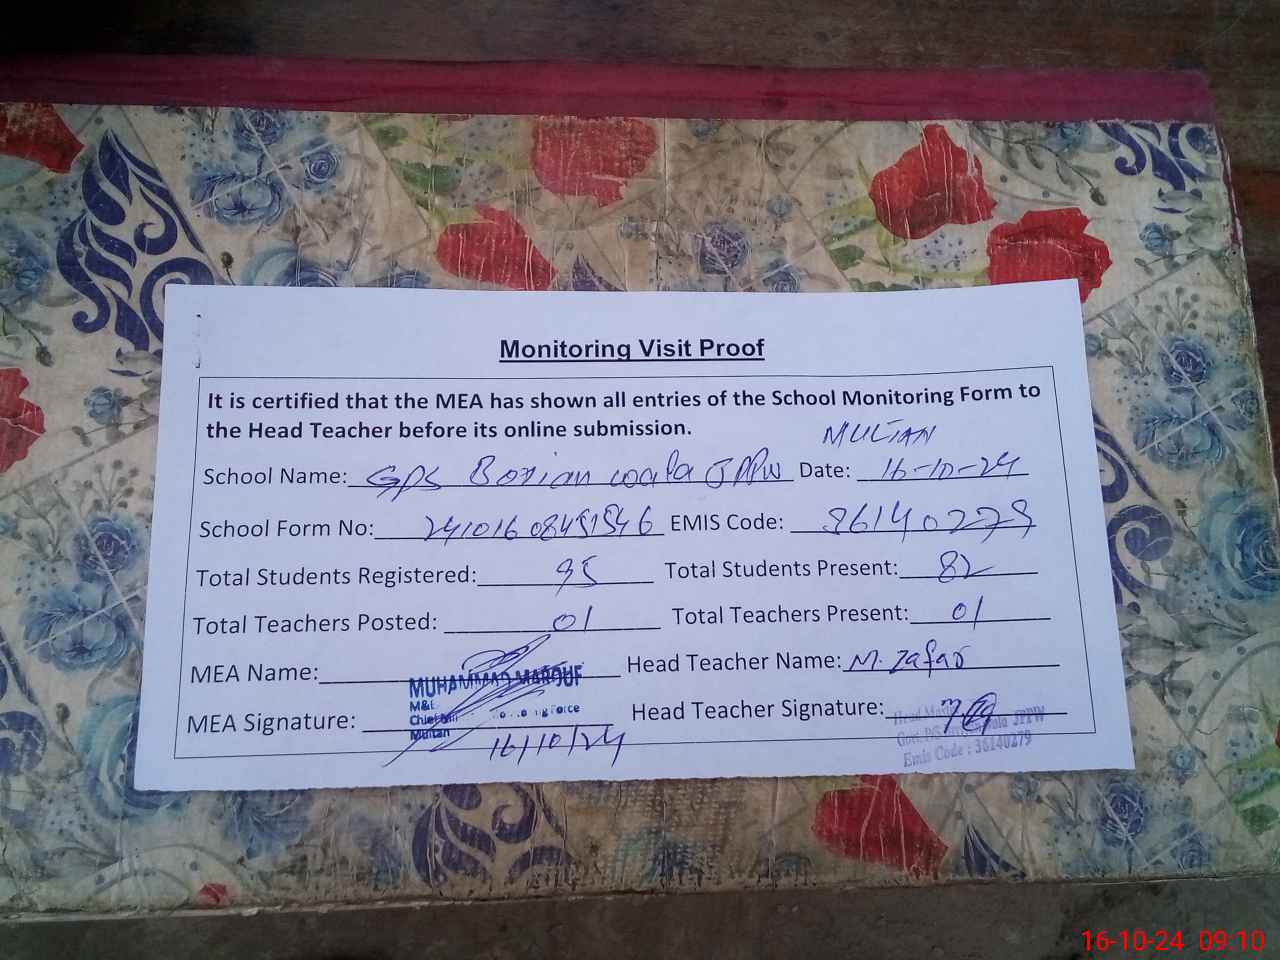 Monitoring Visit Proof
It is certified that the MEA has shown all entries of the School Monitoring Form to
the Head Teacher before its online submission.
MULTAN
School Name: GPS Borian wala JPPW Date: 16-10-24
School Form No: EMIS Code: 36140279
Total Students Registered: 95 Total Students Present: 82
Total Teachers Posted: 01 Total Teachers Present: 01
MEA Name: Head Teacher Name: M. Zafar
MUHAMMAD MAROUF
MEA Signature: Head Teacher Signature:
Multan
16/10/24
JPPW
Emis Code : 36140279
16-10-24 09:10